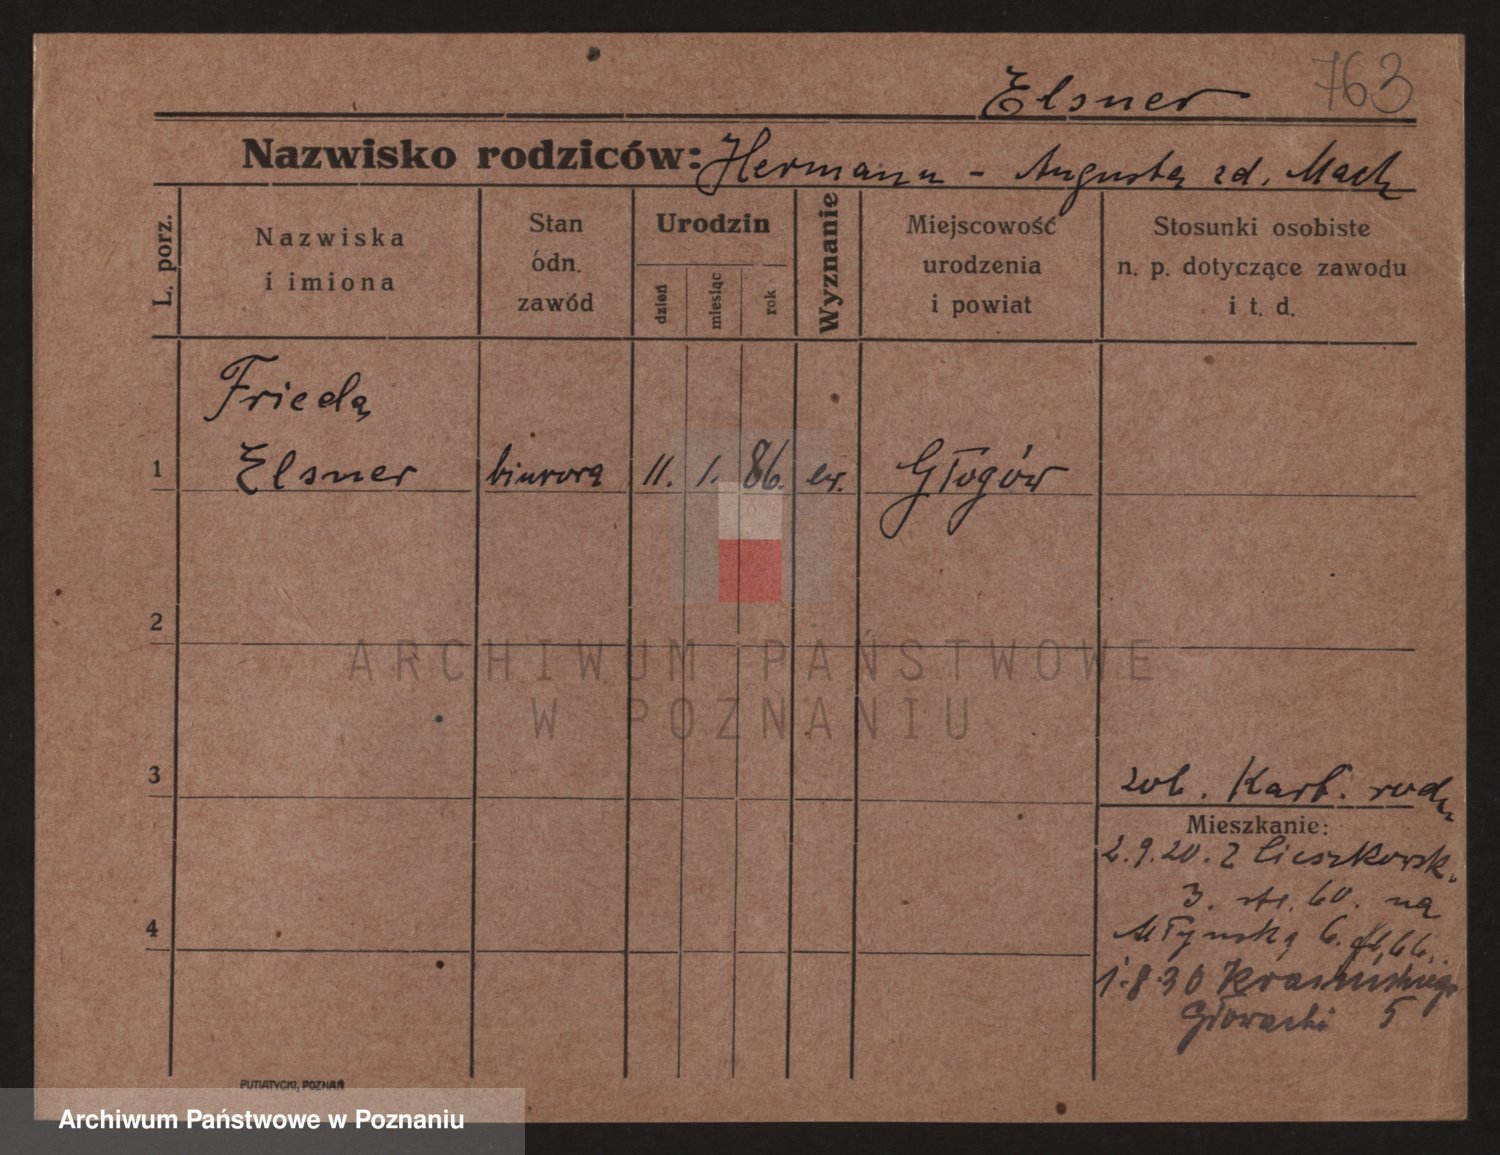 763
Elsner
Nazwisko rodziców: Hermann - Augusta zd. Mach
L. porz.
Nazwiska
i imiona
Stan
ódn.
zawód
Urodzin
dzień
miesiąc
rok
Wyznanie
Miejscowość
urodzenia
i powiat
Stosunki osobiste
n. p. dotyczące zawodu
i t. d.
Frieda
1 Elsner biurowa 11. 1. 86. ew. Głogów
2
3
zob. Kart. rodz
Mieszkanie:
2.9.20. z Cieszkowsk.
3. str. 60. na
Młyńską 6.
1.8.30 Krasińskiego
Głowacki 5
4
PUTIATYCKI, POZNAŃ
ARCHIWUM PAŃSTWOWE
W POZNANIU
Archiwum Państwowe w Poznaniu